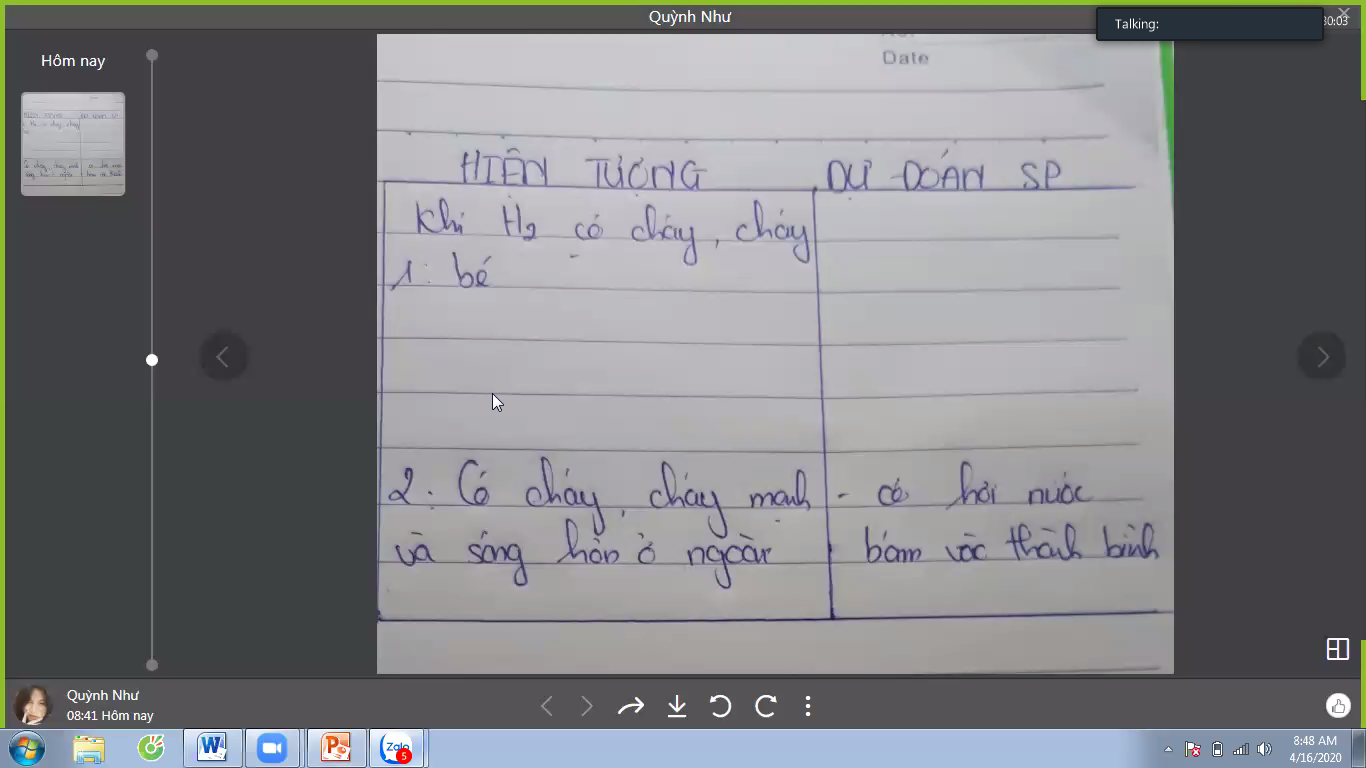 Quỳnh Như
Talking:
30:03
Hôm nay
Date
HIỆN TƯỢNG DỰ ĐOÁN SP
Khí H2 có cháy, cháy
1. bé
2. Có cháy, cháy mạnh - có hơi nước
và sáng hơn ở ngoài bám vào thành bình
Quỳnh Như
08:41 Hôm nay
Zalo
5
8:48 AM
4/16/2020